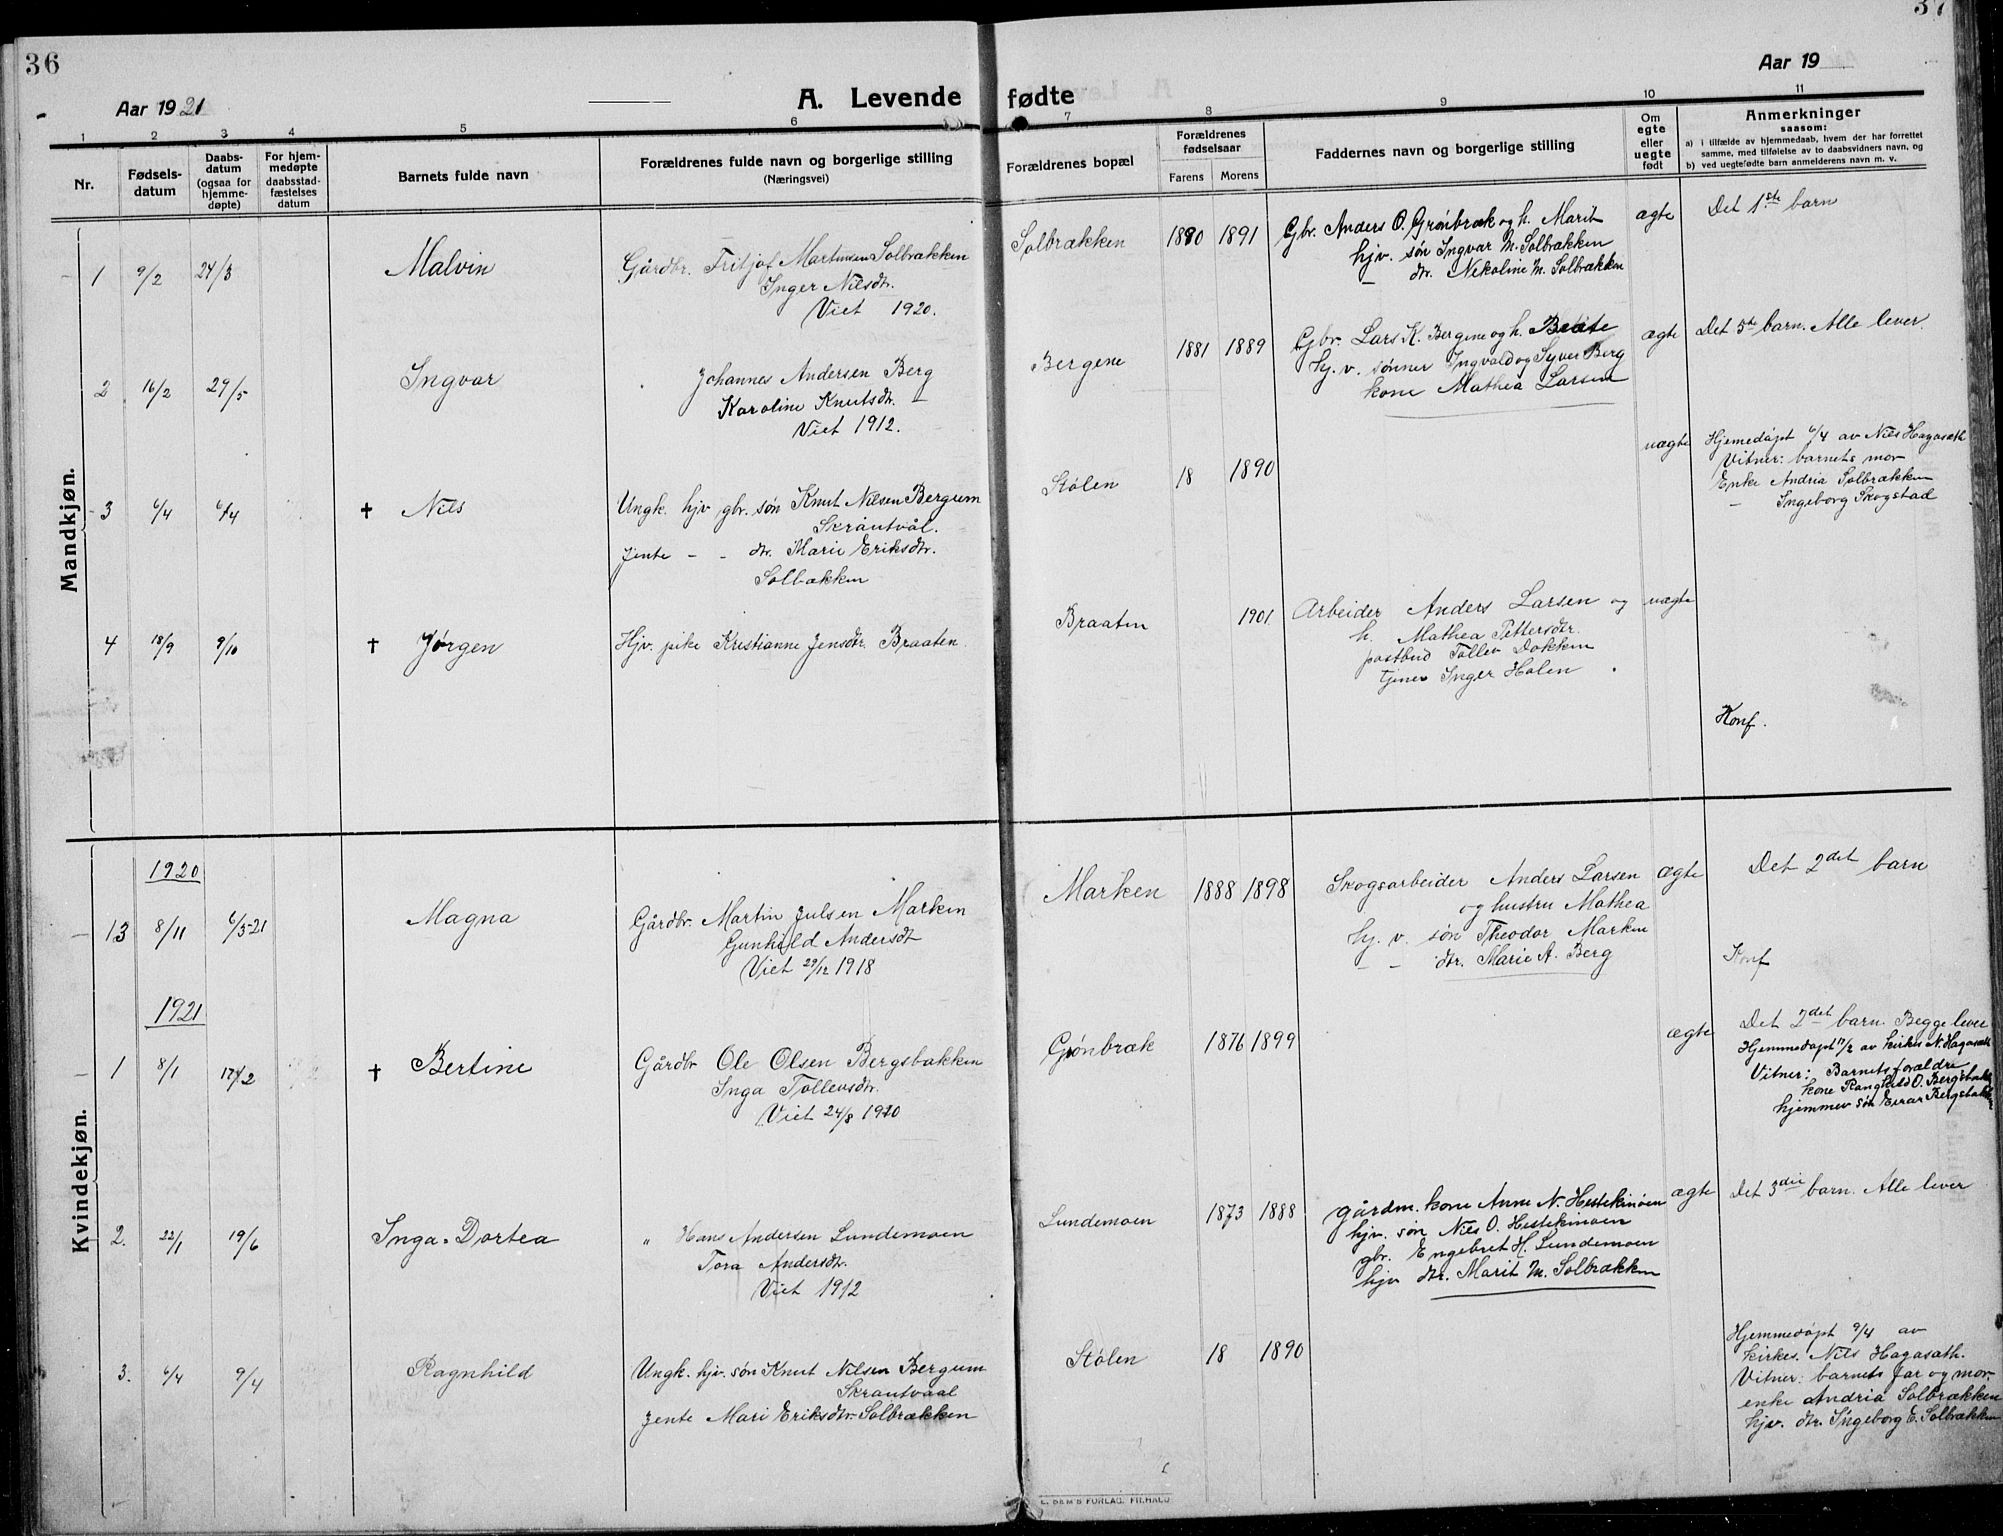 36
37
Aar 1921
A. Levende fødte
Aar 19
1 2 3 4 5 6 7 8 9 10 11
Nr.
Fødsels-
datum
Daabs-
datum
(ogsaa for
hjemme-
døpte)
For hjem-
medøpte
daabsstad-
fæstelses
datum
Barnets fulde navn
Forældrenes fulde navn og borgerlige stilling
(Næringsvei)
Forældrenes bopæl
Forældrenes
fødselsaar
Farens Morens
Faddernes navn og borgerlige stilling
Om
egte
eller
uegte
født
Anmerkninger
saasom:
a) i tilfælde av hjemmedaab, hvem der har forrettet
samme, med tilføielse av to daabsvidners navn, og
b) ved uegtefødte barn anmelderens navn m. v.
Mandkjøn.
1 9/2 24/3 Malvin
Gårdbr. Fritjof Martinsen Solbrækken
Inger Nilsdtr.
Viet 1920.
Solbrækken 1880 1891
Gbr. Anders O. Grønbræk og h. Marit
hjv. søn Ingvar M. Solbrækken
– dtr. Nikoline M. Solbrækken
ægte
Det 1ste barn
2 16/2 29/5 Ingvar
Johannes Andersen Berg
Karoline Knutsdtr.
Viet 1912.
Bergene 1881 1889
Gbr. Lars K. Bergene og h. Beate
hj. v. sønner Ingvald og Syver Berg
kone Mathea Larsen
ægte
Det 5te barn. Alle lever.
3 6/4 6/4 † Nils
Ungk. hjv gbr. søn Knut Nilsen Bergum
Skrautvål.
Jente – – dtr. Marie Eriksdtr.
Solbækken
Stølen 18 1890
uægte
Hjemedøpt 6/4 av Nils Hagasæth
Vitner: barnets mor
Enke Andria Solbrækken
– Ingeborg Skogstad
4 18/9 9/10 † Jørgen
Hjv. pike Kristianne Jensdtr. Braaten.
Braaten 1901
Arbeider Anders Larsen og
h. Mathea Pettersdtr.
postbud Tollev Dokken
tjener Inger Holen
uægte
Konf.
Kvindekjøn.
1920
13 8/11 6/3-21 Magna
Gårdbr. Martin Julsen Marken
Gunhild Andersdt
Viet 29/12 1918
Marken 1888 1898
Skogsarbeider Anders Larsen
og hustru Mathea
hj. v. søn Theodor Marken
– – dtr. Marie A. Berg
ægte
Det 2det barn
Konf
1921
1 8/1 17/2 † Bertine
Gårdbr Ole Olsen Bergsbakken
Inga Tollevsdtr.
Viet 24/8 1920
Grønbræk 1876 1899
ægte
Det 2det barn. Begge lever
Hjemmedøpt 17/2 av kirkes. N. Hagasæth
Vitner: Barnets forældre
kone Ranghild O. Bergsbakk
hjemmev søn Einar Bergsbakken
2. 22/1 19/6 Inga-Dortea
" Hans Andersen Lundemoen
Tora Andersdtr.
Viet 1912
Lundemoen 1873 1888
gårdm. kone Anne N. Hestekinoen
hjv. søn Nils O. Hestekinoen
gbr. Engebret H. Lundemoen
hjv dtr. Marit M. Solbrækken
ægte
Det 3die barn. Alle lever
3. 6/4 9/4 Ragnhild
Ungk. hjv. søn Knut Nilsen Bergum
Skrautvaal
Jente Mari Eriksdtr. Solbrækken
Stølen 18 1890
Hjemmedøpt 9/4 av
kirkes. Nils Hagasæth.
Vitner: barnets far og mor
enke Andria Solbrækken
hjv. dtr. Ingeborg E. Solbrækken
E. SEM'S FORLAG, FR.HALD